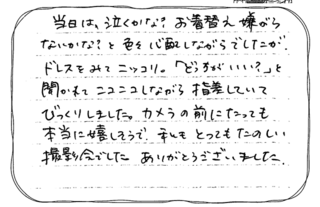 当日は、泣くかな？お着替え嫌がら
ないかな？と色々心配しながらでしたが、
ドレスをみてニッコリ。「どっちがいい？」と
聞かれてニコニコしながら指差していて
びっくりしました。カメラの前にたっても
本当に嬉しそうで、私もとってもたのしい
撮影会でした ありがとうございました。